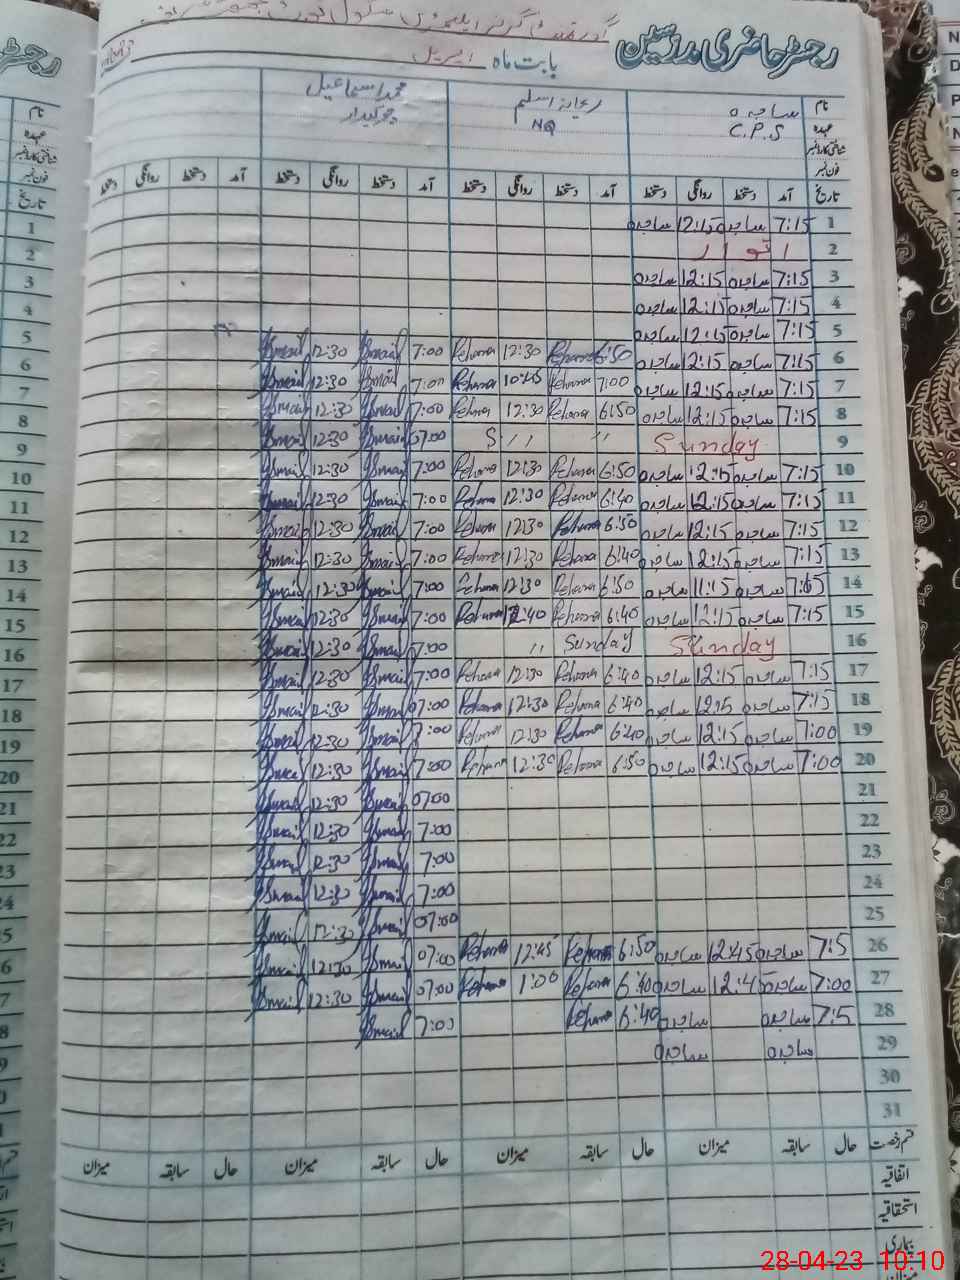 گورنمنٹ گرلز ایلیمنٹری سکول
رجسٹر حاضری مدرسین بابت ماہ اپریل
نام ساجدہ ریحانہ اسلم محمد اسماعیل
عہدہ C.P.S NQ چوکیدار
شناختی کارڈ نمبر
فون نمبر
تاریخ آمد دستخط روانگی دستخط آمد دستخط روانگی دستخط آمد دستخط روانگی دستخط آمد دستخط روانگی دستخط
1 7:15 ساجدہ 12:15 ساجدہ
2 اتوار
3 7:15 ساجدہ 12:15 ساجدہ
4 7:15 ساجدہ 12:15 ساجدہ
5 7:15 ساجدہ 12:15 ساجدہ
6 7:15 ساجدہ 12:15 ساجدہ 6:50 Rehana 12:30 Rehana 7:00 Ismail 12:30 Ismail
7 7:15 ساجدہ 12:15 ساجدہ 7:00 Rehana 10:45 Rehana 7:00 Ismail 12:30 Ismail
8 7:15 ساجدہ 12:15 ساجدہ 6:50 Rehana 12:30 Rehana 7:00 Ismail 12:30 Ismail
9 Sunday S ,, ,, 07:00 Ismail 12:30 Ismail
10 7:15 ساجدہ 12:15 ساجدہ 6:50 Rehana 12:30 Rehana 7:00 Ismail 12:30 Ismail
11 7:15 ساجدہ 12:15 ساجدہ 6:40 Rehana 12:30 Rehana 7:00 Ismail 12:30 Ismail
12 7:15 ساجدہ 12:15 ساجدہ 6:50 Rehana 12:30 Rehana 7:00 Ismail 12:30 Ismail
13 7:15 ساجدہ 12:15 ساجدہ 6:40 Rehana 12:30 Rehana 7:00 Ismail 12:30 Ismail
14 ساجدہ 11:15 ساجدہ 6:50 Rehana 12:30 Rehana 7:00 Ismail 12:30 Ismail
15 7:15 ساجدہ 12:15 ساجدہ 6:40 Rehana 12:40 Rehana 7:00 Ismail 12:30 Ismail
16 Sunday Sunday ,, 7:00 Ismail 12:30 Ismail
17 7:15 ساجدہ 12:15 ساجدہ 6:40 Rehana 12:30 Rehana 7:00 Ismail 12:30 Ismail
18 7:15 ساجدہ 12:15 ساجدہ 6:40 Rehana 12:30 Rehana 07:00 Ismail 12:30 Ismail
19 7:00 ساجدہ 12:15 ساجدہ 6:40 Rehana 12:30 Rehana 7:00 Ismail 12:30 Ismail
20 7:00 ساجدہ 12:15 ساجدہ 6:50 Rehana 12:30 Rehana 7:00 Ismail 12:30 Ismail
21 07:00 Ismail 12:30 Ismail
22 7:00 Ismail 12:30 Ismail
23 7:00 Ismail 12:30 Ismail
24 7:00 Ismail 12:30 Ismail
25 07:00 Ismail 12:30 Ismail
26 7:5 ساجدہ 12:45 ساجدہ 6:50 Rehana 12:45 Rehana 07:00 Ismail 12:30 Ismail
27 7:00 ساجدہ 12:45 ساجدہ 6:40 Rehana 1:00 Rehana 07:00 Ismail 12:30 Ismail
28 7:5 ساجدہ ساجدہ 6:40 Rehana 7:00 Ismail
29 ساجدہ ساجدہ
30
31
قسم رخصت حال سابقہ میزان حال سابقہ میزان حال سابقہ میزان حال سابقہ میزان
اتفاقیہ
استحقاقیہ
بیماری
میزان
28-04-23 10:10